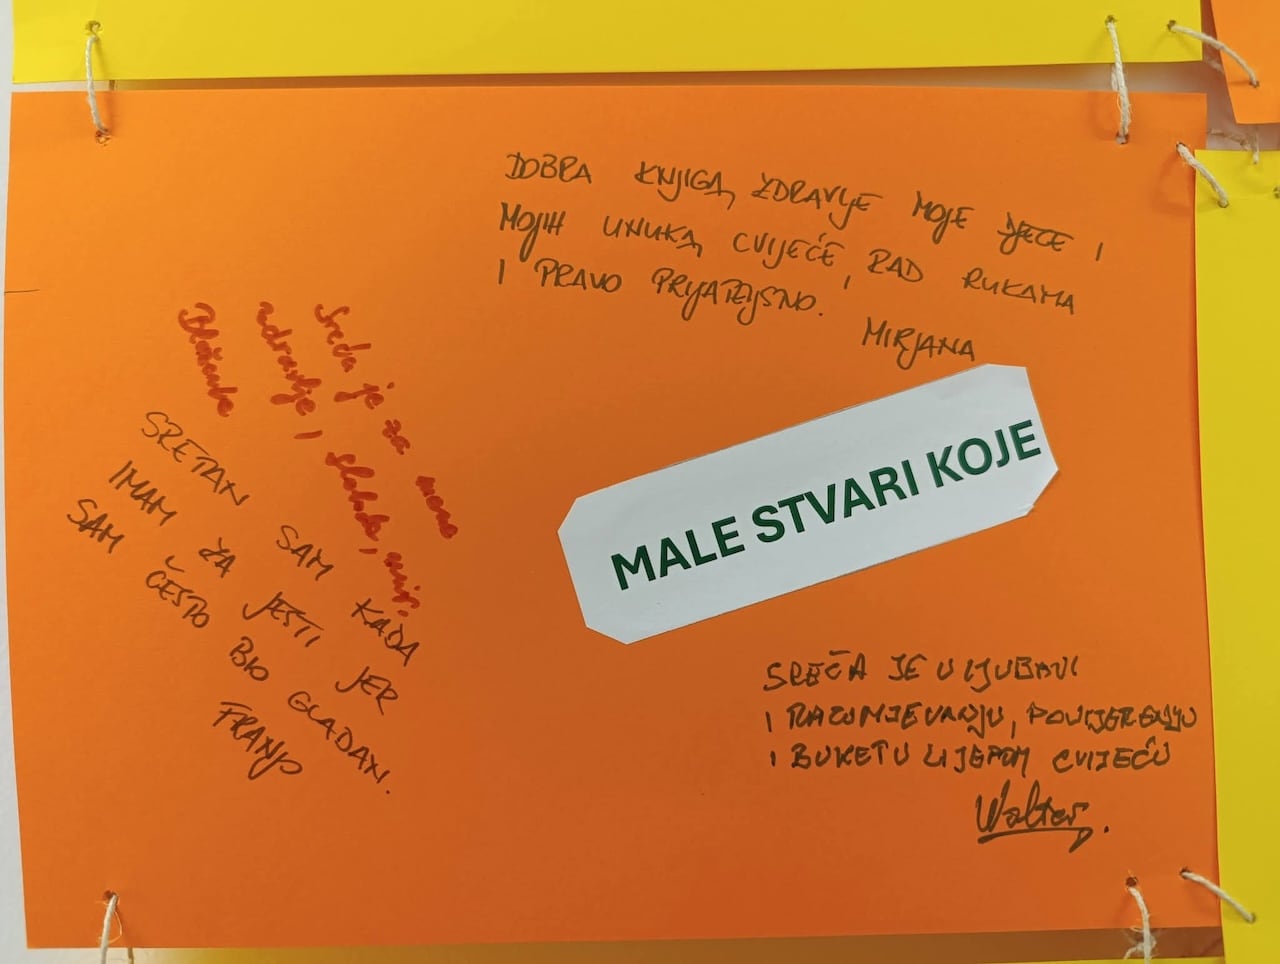 DOBRA KNJIGA, ZDRAVLJE MOJE DJECE I
MOJIH UNUKA, CVIJEĆE, RAD RUKAMA
I PRAVO PRIJATELJSTVO.
MIRJANA
MALE STVARI KOJE
Sreća je za mene
zdravlje, sloboda, mir.
SRETAN SAM KADA
IMAM ZA JESTI JER
SAM ČESTO BIO GLADAN.
FRANJO
SREČA JE U LJUBAVI
I RAZUMJEVANJU, POVJERENJU
I BUKETU LIJEPOM CVIJEĆU
Walter.